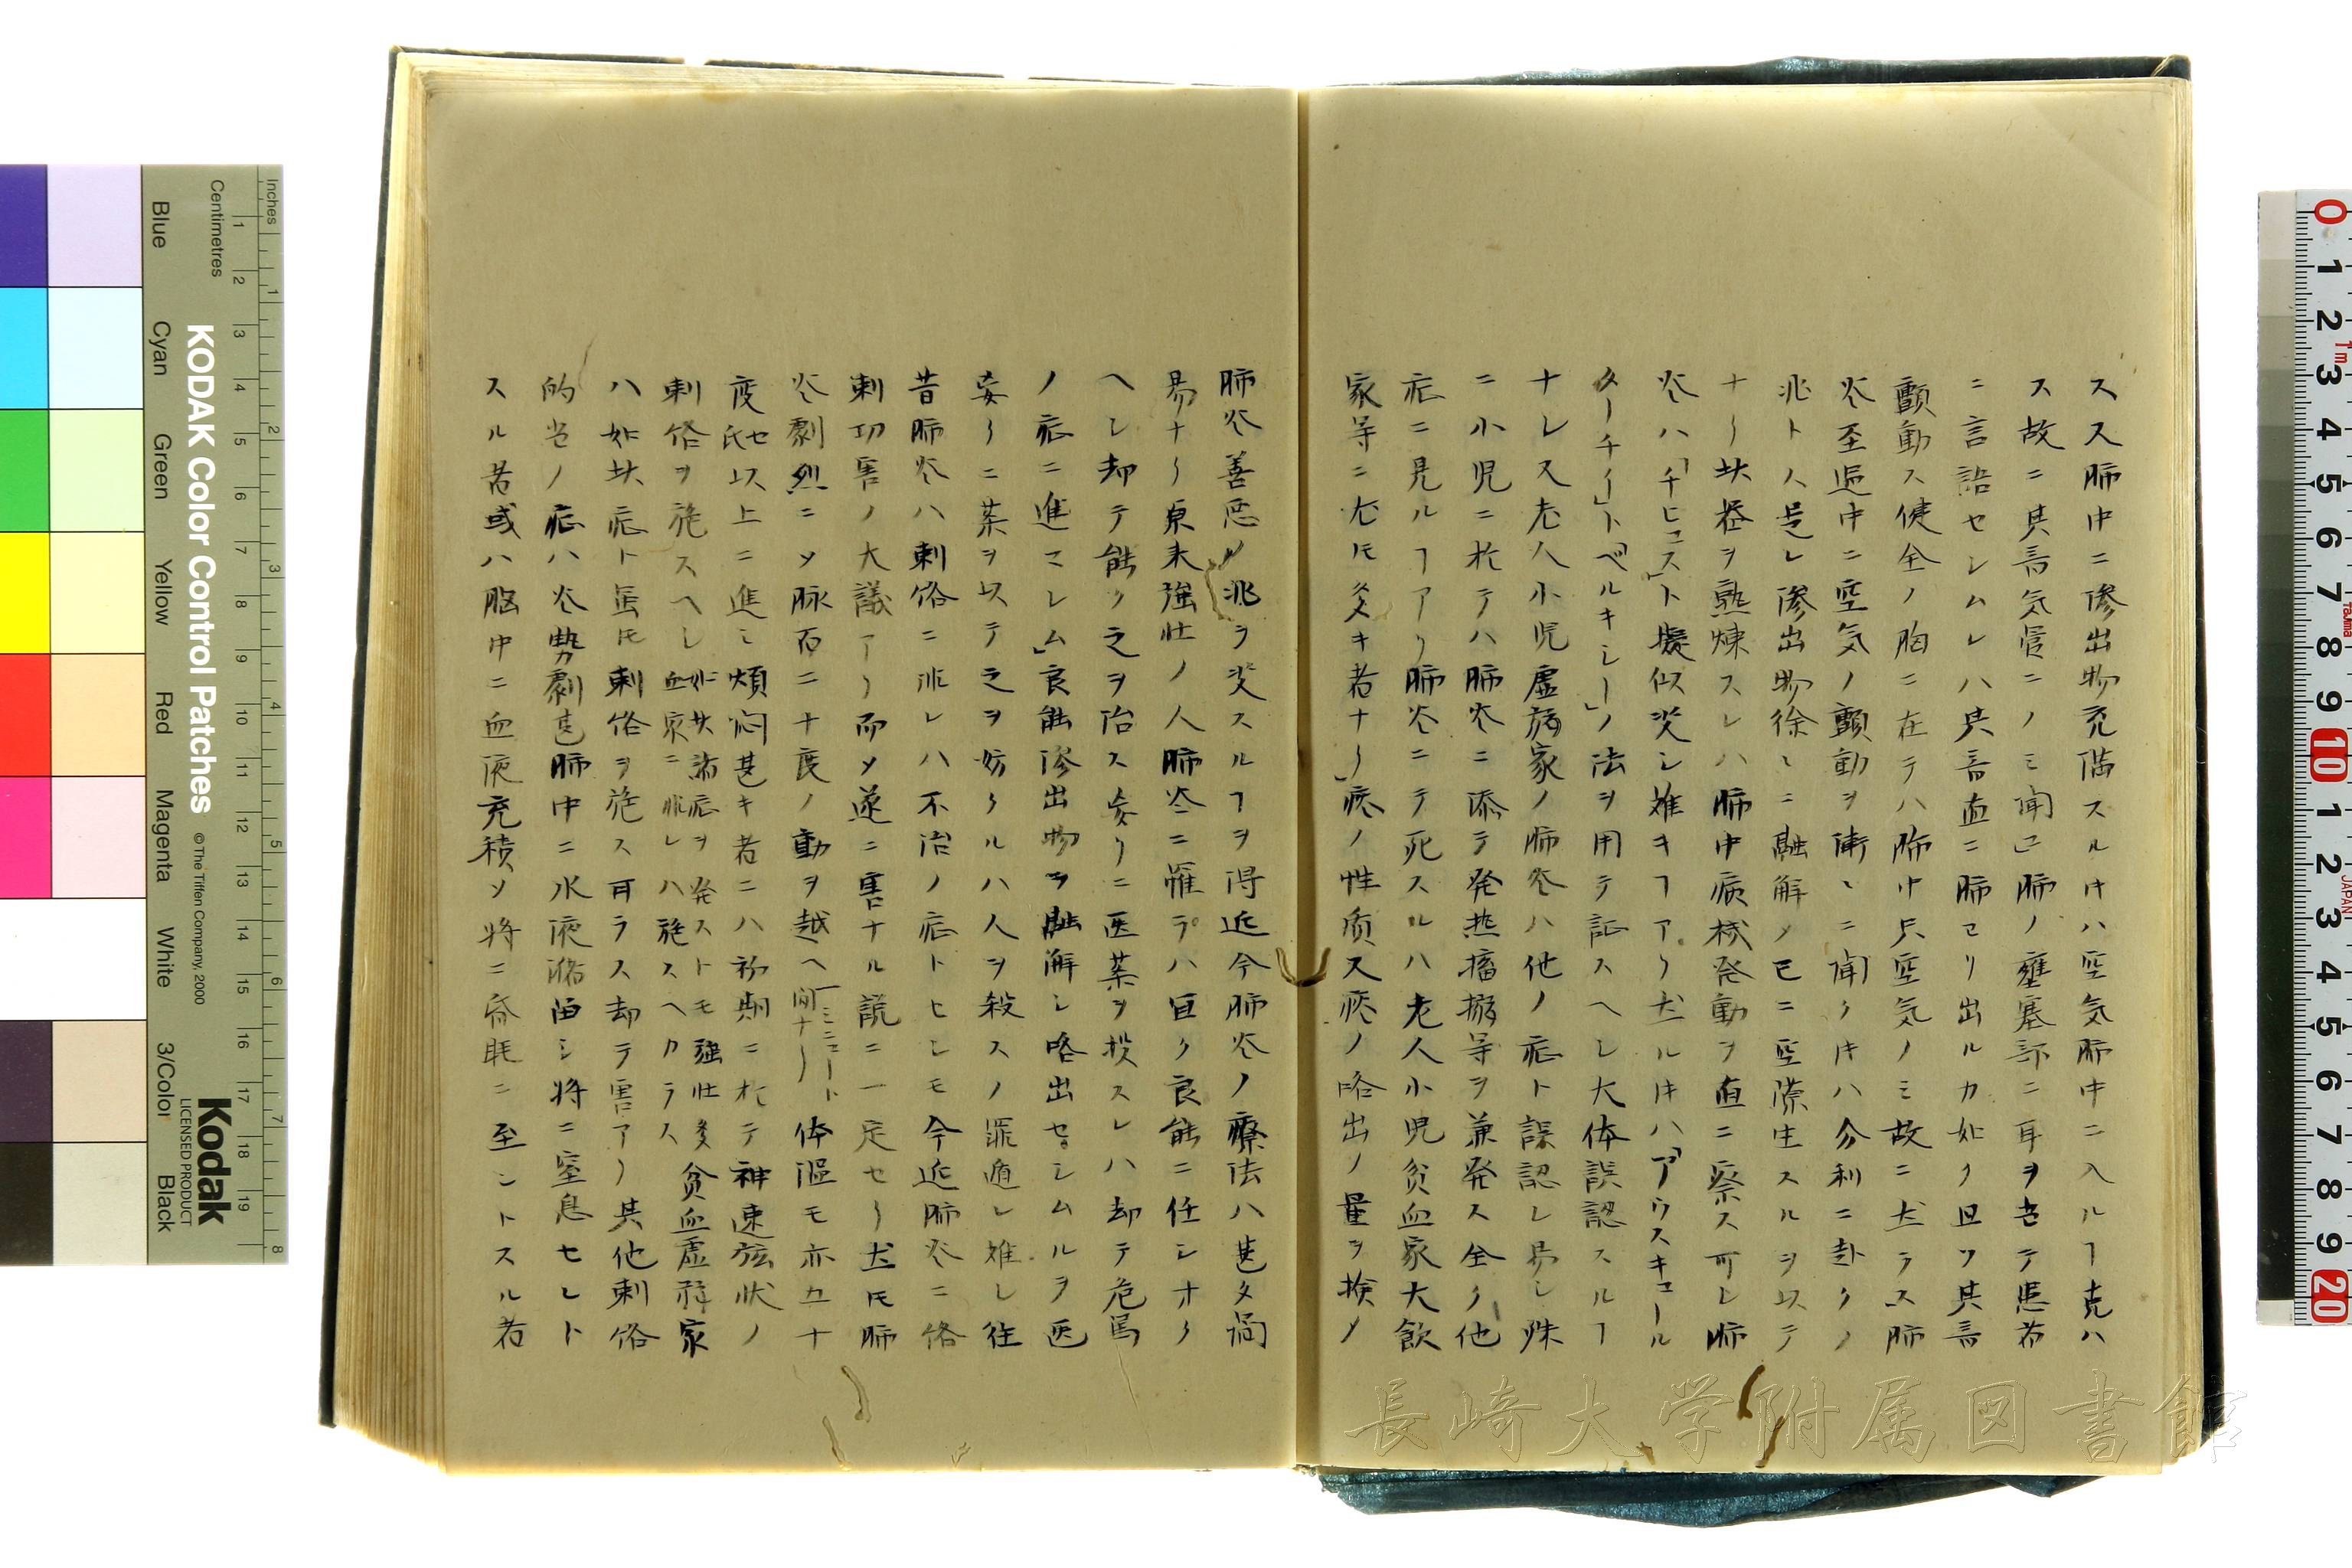 ス又肺中ニ滲出物充満スルㇳキハ空気肺中ニ入ルヿ克ハ
ス故ニ其音気管ニノミ聞ヘ肺ノ壅塞部ニ耳ヲ当テ患者
ニ言語セシムレハ其音直ニ肺ヨリ出ルカ如ク且ツ其音
顫動ス健全ノ胸ニ在テハ肺中只空気ノミ故ニ然ラス肺
炎至過中ニ空気ノ顫動ヲ漸々ニ聞クㇳキハ分利ニ赴クノ
兆トス是レ滲出物徐々ニ融解メ已ニ空隙生スルヲ以テ
ナリ此器ヲ熟煉スレハ肺中病機発動ヲ直ニ察ス可シ肺
炎ハ「チヒュス」ト擬似決シ難キヿアリ然ルㇳキハ「アウスキュール
ターチー」ト「ベルキシー」ノ法ヲ用テ証スヘシ大体誤認スルヿ
ナレ又老人小児虚弱家ノ肺炎ハ他ノ症ト誤認シ易シ殊
ニ小児ニ於テハ肺炎ニ添テ発熱搐搦等ヲ兼発ス全ク他
症ニ見ルヿアリ肺炎ニテ死スルハ老人小児貧血家大飲
家等ニ尤モ多キ者ナリ」痰ノ性質又痰ノ咯出ノ量ヲ検メ
肺炎善悪ノ兆ヲ決スルヿヲ得近今肺炎ノ療法ハ甚タ簡
易ナリ原来強壮ノ人肺炎ニ罹テハ宜ク良能ニ任シオク
ヘシ却テ能ク之ヲ治ス妄リニ医薬ヲ投スレハ却テ危篤
ノ症ニ進マシム」良能滲出物ヲ融解シ咯出セシムルヲ医
妄リニ薬ヲ以テ之ヲ妨クルハ人ヲ殺スノ罪遁レ難シ往
昔肺炎ハ刺絡ニ非レハ不治ノ症トセシモ今近肺炎ニ絡
刺功害ノ大議アリ而メ遂ニ害ナル説ニ一定セリ然𪜈肺
炎劇烈ニメ脉百二十度ノ動ヲ越ヘ一ミニュート間ナリ体温モ亦五十
度以上ニ進ミ煩悶甚キ者ニハ初期ニ於テ神速弦状ノ
刺絡ヲ施スヘシ此諸症ヲ発ストモ強壮多血家ニ非レハ施スヘカラス貧血虚弱家
ハ如此症ト雖𪜈刺絡ヲ施ス可ラス却テ害アリ其他刺絡
的当ノ症ハ炎勢劇甚肺中ニ水液瀦留シ将ニ窒息セント
スル者或ハ脳中ニ血液充積メ将ニ昏眊ニ至ントスル者
Inches
Centimetres
KODAK Color Control Patches
© The Tiffen Company, 2000
Kodak
LICENSED PRODUCT
Blue Cyan Green Yellow Red Magenta White 3/Color Black
長崎大学附属図書館
JAPAN